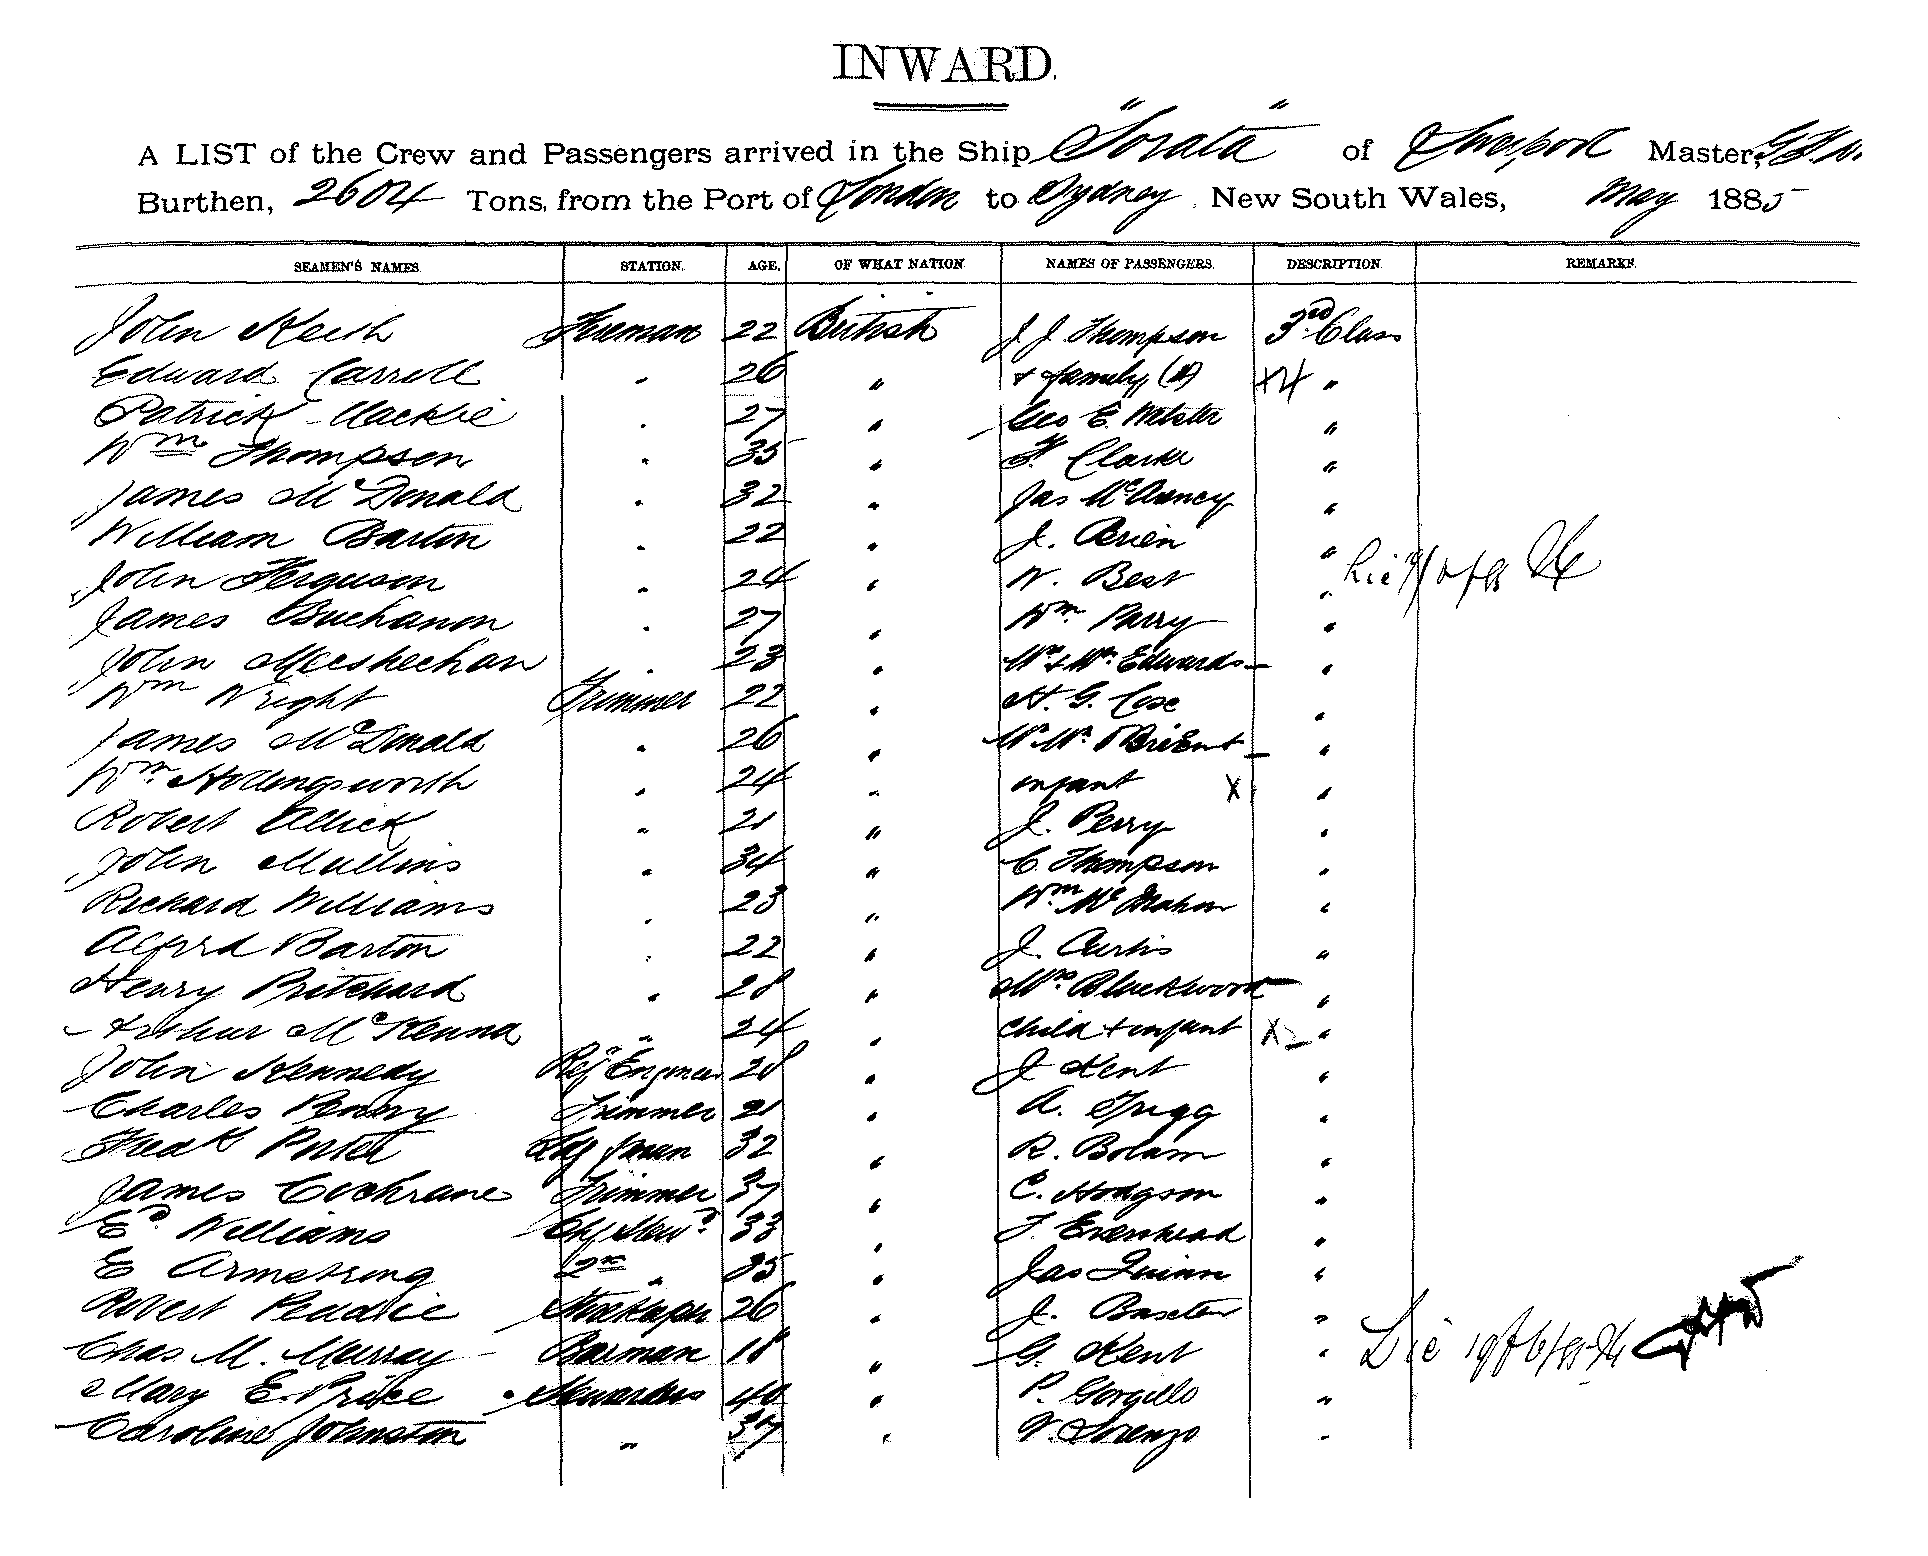 INWARD.
A LIST of the Crew and Passengers arrived in the Ship "Sorata" of Liverpool Master,
Burthen, 2604 Tons, from the Port of London to Sydney, New South Wales, May 1885
SEAMEN'S NAMES. STATION. AGE. OF WHAT NATION NAMES OF PASSENGERS. DESCRIPTION. REMARKS.
John Keith Fireman 22 British J J Thompson 3rd Class
Edward Carroll " 26 " + family (4) X4 "
Patrick Mackie " 27 " Geo E. Webster "
Wm Thompson " 35 " F. Clarke "
James McDonald " 32 " Jas "
William Barton " 22 " J. Brien "
John Ferguson " 24 " W. Best "
James Buchanon " 27 " Wm Parry "
John " 23 " Mr & Mrs Edwards "
Wm Wright Trimmer 22 " H. G. Cox "
James McDonald " 26 " Mr Mrs "
Wm Hollingsworth " 24 " infant X "
Robert " 21 " J. Perry "
John Mullins " 34 " C. Thompson "
Richard Williams " 23 " Wm McMahon "
Alfred Barton " 22 " J. Curtis "
Henry Pritchard " 28 " Mrs Blackwood "
Arthur McKenna " 24 " child + infant X2 "
John Kennedy Ref Engineer 28 " J Kent "
Charles Penny Trimmer 21 " A. Trigg "
Porter 32 " R. Bolam "
James Cochrane Trimmer 37 " C. Hodgson "
Ed Williams Chf Stewd 33 " "
E Armstrong 2nd " 35 " Jas Quinn "
Robert Peddie Storekeeper 26 " J. Baxter "
Chas M. Murray Barman 18 " G. Kent "
Mary E. Price Stewardess 40 " P. Gorgillo "
Caroline Johnston " 37 " V. Lorenzo "